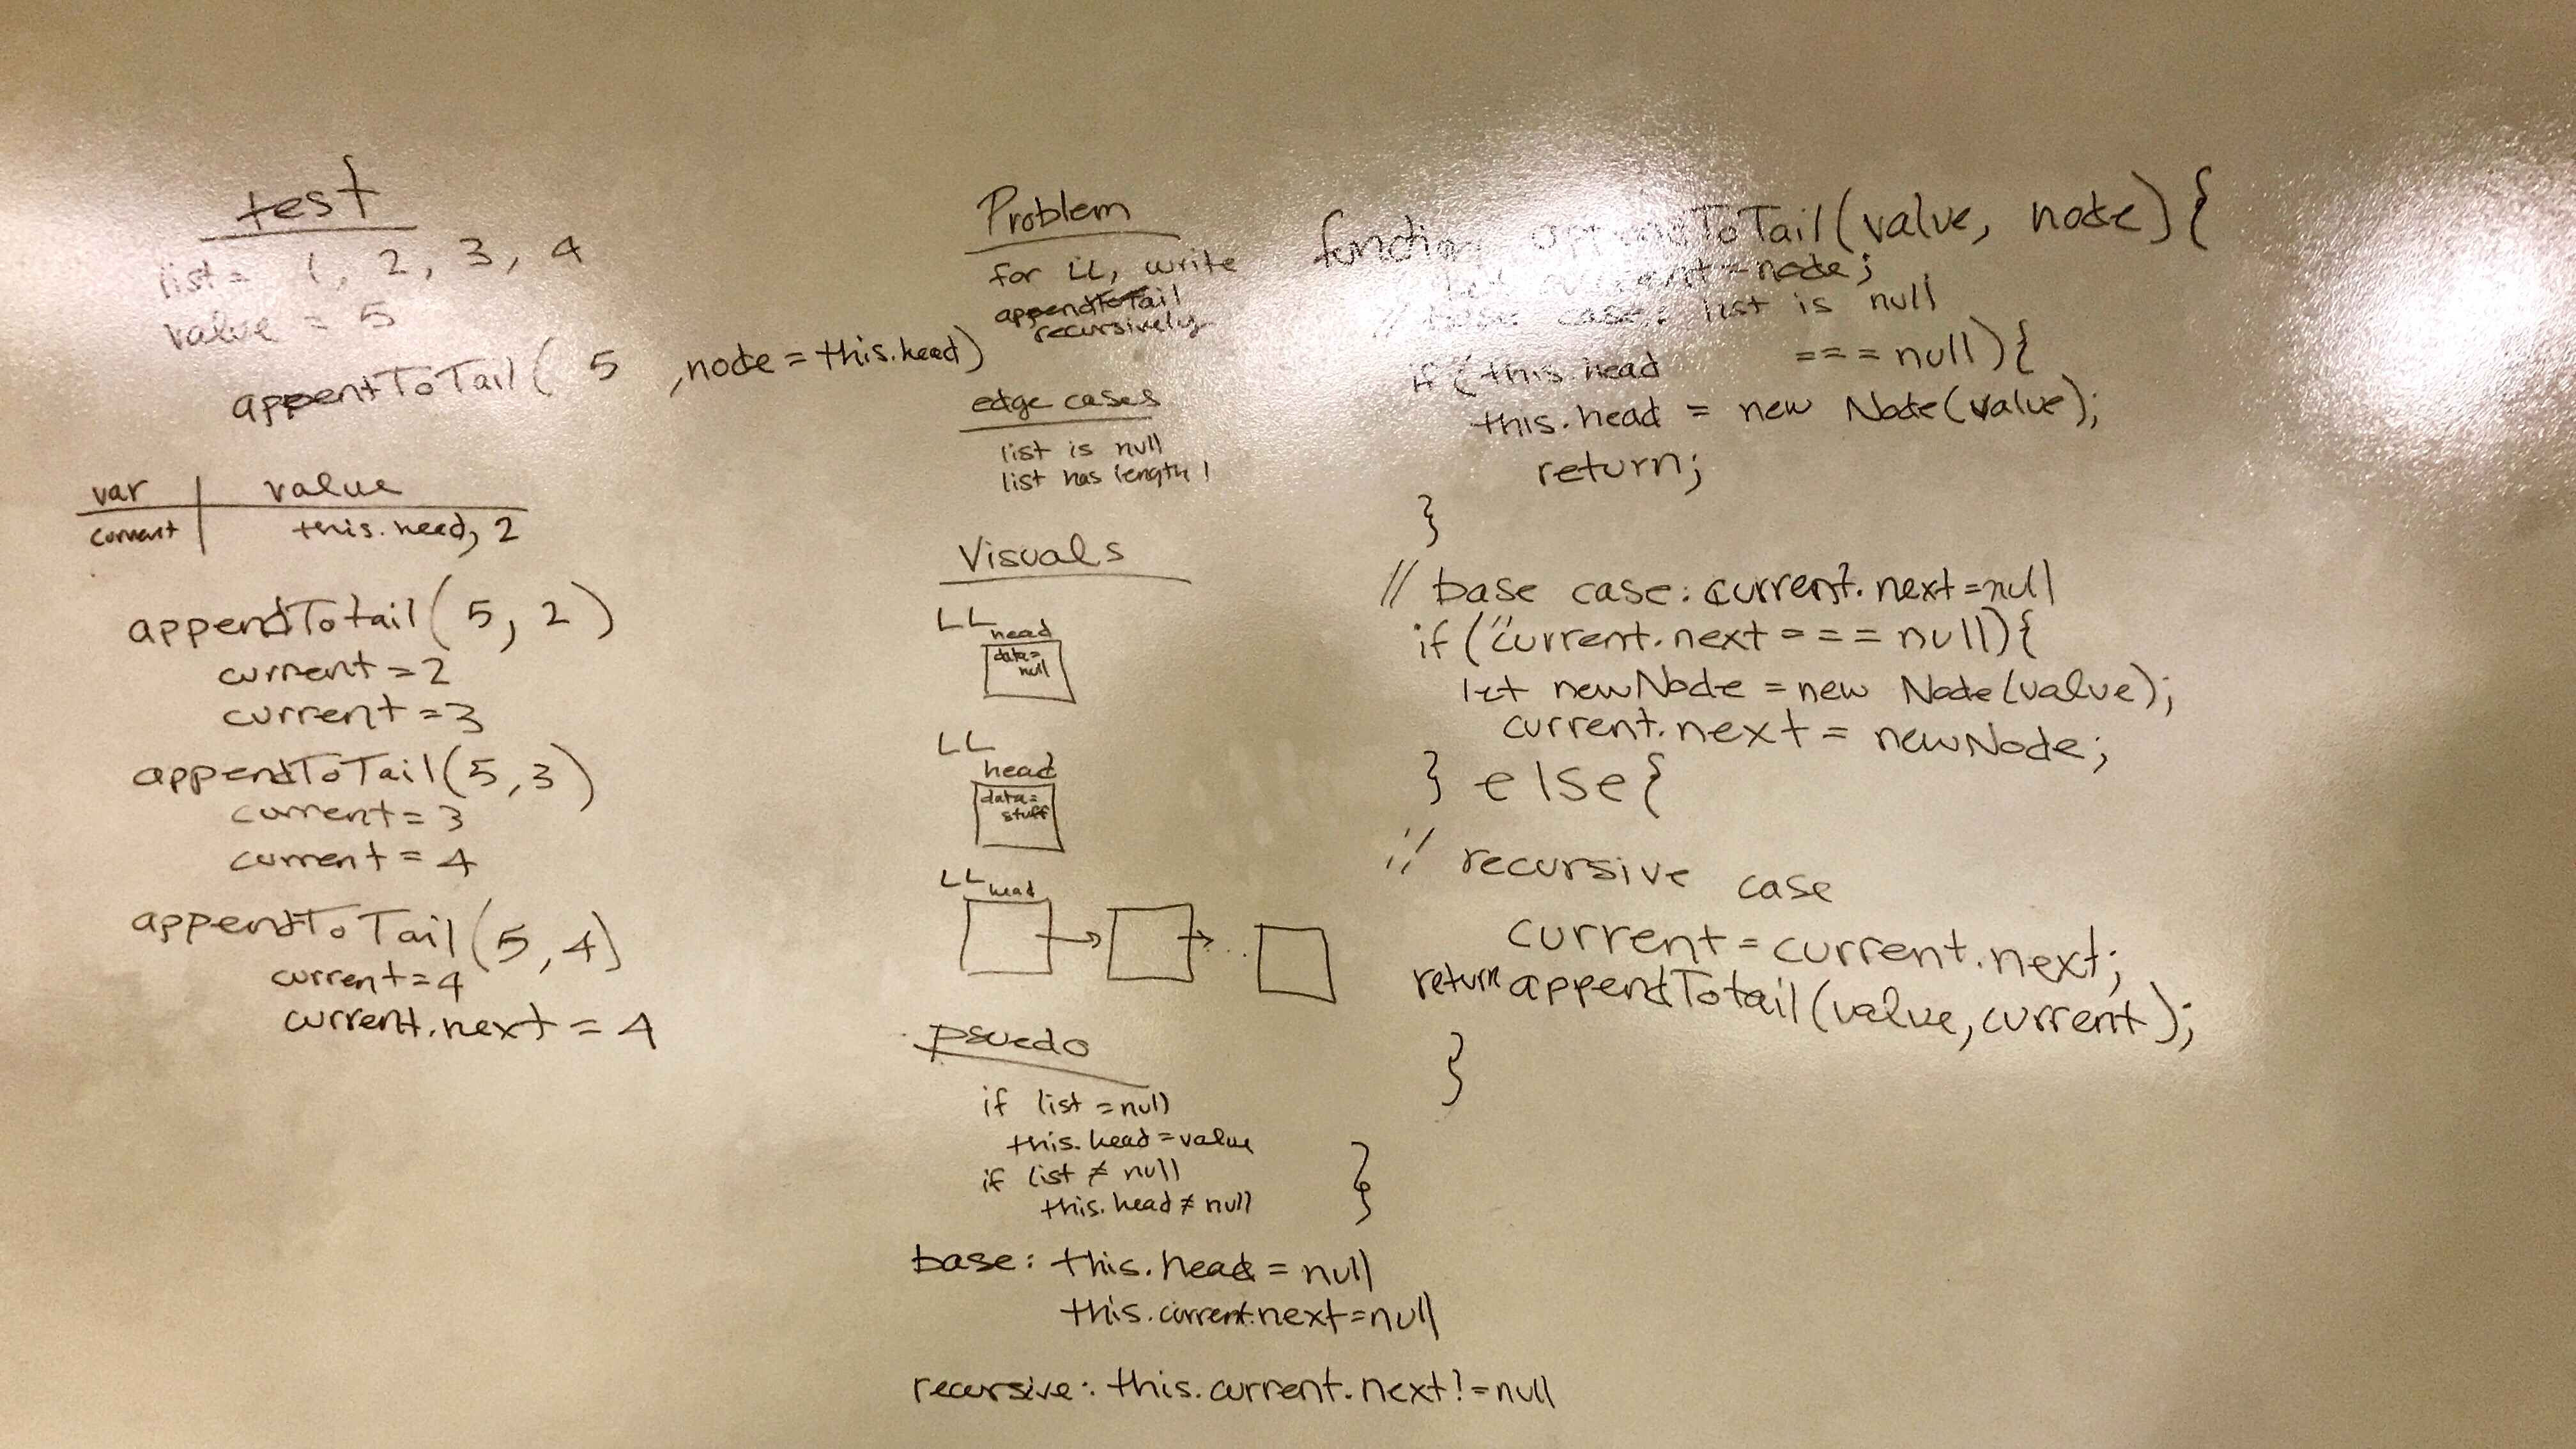 test
list = 1, 2, 3, 4
value = 5
appentToTail( 5 , node = this.head)
var | value
current | this.head, 2
appendTotail(5, 2)
current = 2
current = 3
appendToTail(5,3)
current = 3
current = 4
appendToTail(5,4)
current = 4
current.next = 4
Problem
for LL, write
appendToTail
recursively
edge cases
list is null
list has length 1
Visuals
LL
head
data=
null
LL
head
data=
stuff
LL
head
psuedo
if list = null
this.head = value
if list ≠ null
this.head ≠ null
base: this.head = null
this.current.next = null
recursive: this.current.next != null
function appendToTail(value, node) {
let current = node;
// base case: list is null
if (this.head === null){
this.head = new Node(value);
return;
}
// base case: current.next = null
if (current.next === null){
let newNode = new Node(value);
current.next = newNode;
} else {
// recursive case
current = current.next;
return appendTotail(value, current);
}
}